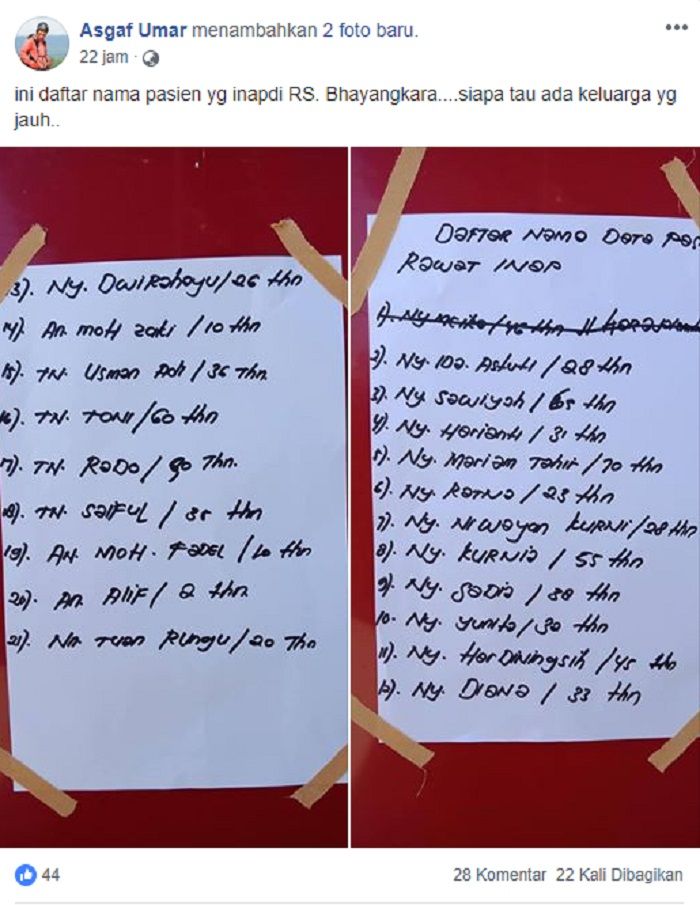 Asgaf Umar menambahkan 2 foto baru.
22 jam
ini daftar nama pasien yg inapdi RS. Bhayangkara....siapa tau ada keluarga yg
jauh..
13). Ny. Dwi Rahayu/26 thn
14). An. moH zaki /10 thn
15). TN. Usman Adi /36 Thn
16). TN. TONI/60 thn
17). TN. RaDo / 90 Thn.
18). TN. SaiFUL / 35 thn
19). AN. MOH. FaDEL /10 thn
20). An. Alif/ 2 thn
21). Tuan Rungu/20 Thn
DaFTar Nama Data
Rawat INap
1). Ny
2). Ny. IDa. Astuti /28 thn
3). Ny Sawiyah / 65 thn
4). Ny. Harianti / 31 thn
5). Ny. Mariam Tahir /70 thn
6). Ny. Ratna /23 thn
7). Ny. Ni wayan KURNI/28 thn
8). Ny. KURNIa / 55 thn
9). Ny. Sadia / 38 thn
10. Ny. Yunita/30 thn
11). Ny. HarDiningsih /45 thn
12). Ny. DIana / 33 thn
44
28 Komentar 22 Kali Dibagikan